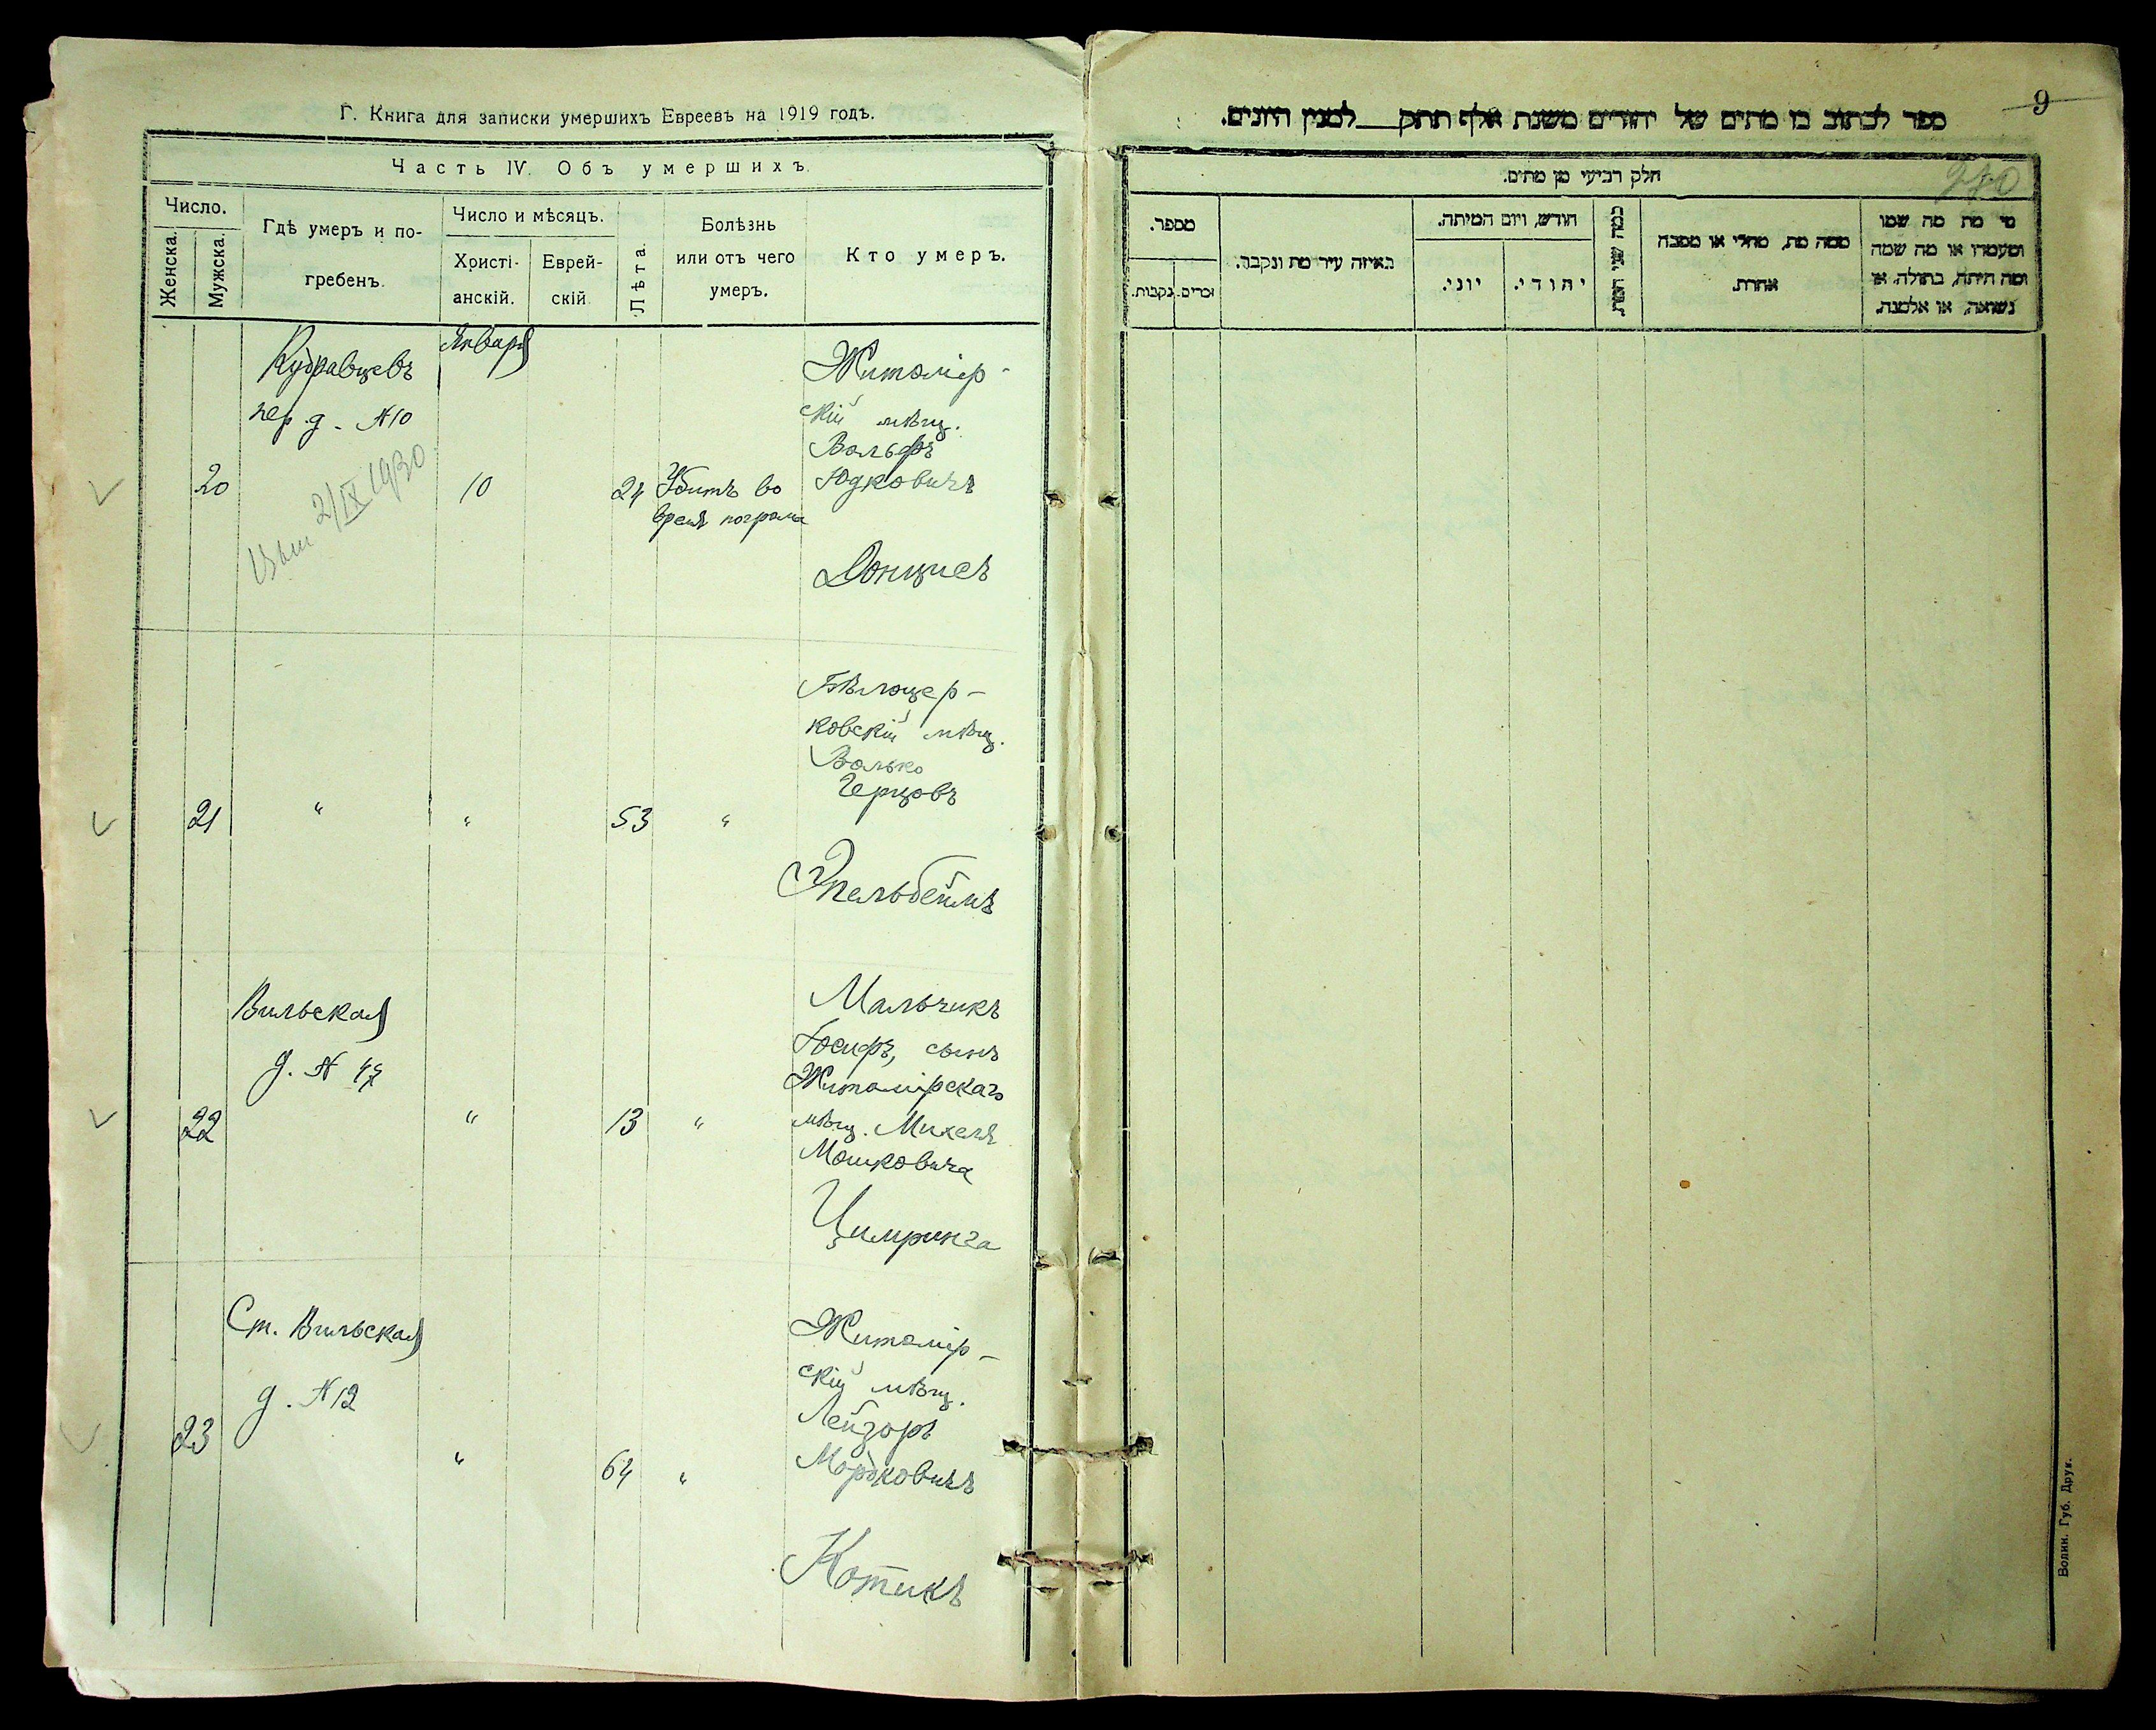 Г. Книга для записки умершихъ Евреевъ на 1919 годъ.
Часть IV. Объ умершихъ.
Число.
Женска.
Мужска.
Гдѣ умеръ и по-
гребенъ.
Число и мѣсяцъ.
Христі-
анскій.
Еврей-
скій
Лѣта.
Болѣзнь
или отъ чего
умеръ.
Кто умеръ.
Января
Кудравцевъ
пер. д. № 10
20
2/IX 1930
10
24
Убитъ во
время погрома
Житомір-
скій мѣщ.
Вольфъ
Юдковичъ
Донцисъ
21
"
"
53
"
Бѣлоцер-
ковскій мѣщ.
Волько
Герцовъ
Эпельбеймъ
Вильская
д. № 47
22
"
13
"
Мальчикъ
Іосифъ, сынъ
Житомірскаго
мѣщ. Михеля
Мошковича
Цимринга
Ст. Вильская
д. № 12
23
"
64
"
Житомір-
скій мѣщ.
Лейзоръ
Мордковичъ
Котикъ
9
ספר לכתוב בו מתים של יהודים משנת אלף תתק___למנין היונים.
270
חלק רביעי מן מתים.
מספר.
זכרים.
נקבות.
באיזה עיר מת ונקבר.
חודש, ויום המיתה.
יוני.
יהודי.
כמה שני המת.
ממה מת, מחלי או מסבה
אחרת.
מי מת מה שמו
ומעמדו או מה שמה
ומה היתה, בתולה, או
נשואה, או אלמנה.
Волин. Губ. Друк.